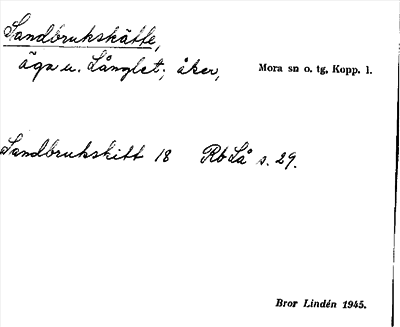 Sandbrukskätte,
äga u. Långlet; åker, Mora sn o. tg, Kopp. l.
Sandbrukskitt 18 RbLå s. 29.
Bror Lindén 1945.